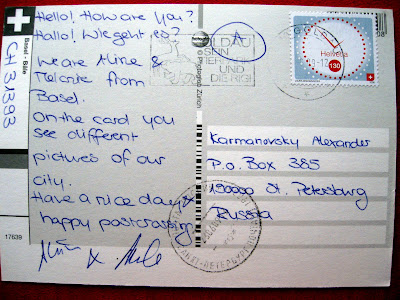 Hello! How are you?
Hallo! Wie geht es?
We are Aline &
Melanie from
Basel.
On the card you
see different
pictures of our
city.
Have a nice day &
happy postcrossing
Basel · Bâle
CH 31393
17639
Photoglob Zürich
GOLDAU
SEIN
TIERPARK
UND
DIE RIGI
A
Helvetia
130
Karmanovsky Alexander
P.o. Box 385
190000 St. Petersburg
Russia